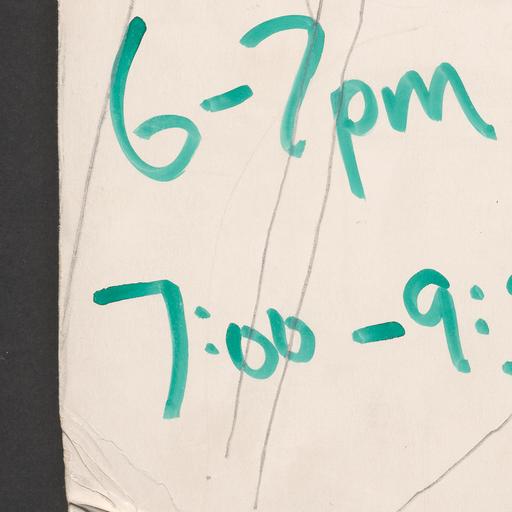 6-7pm
7:00-9: